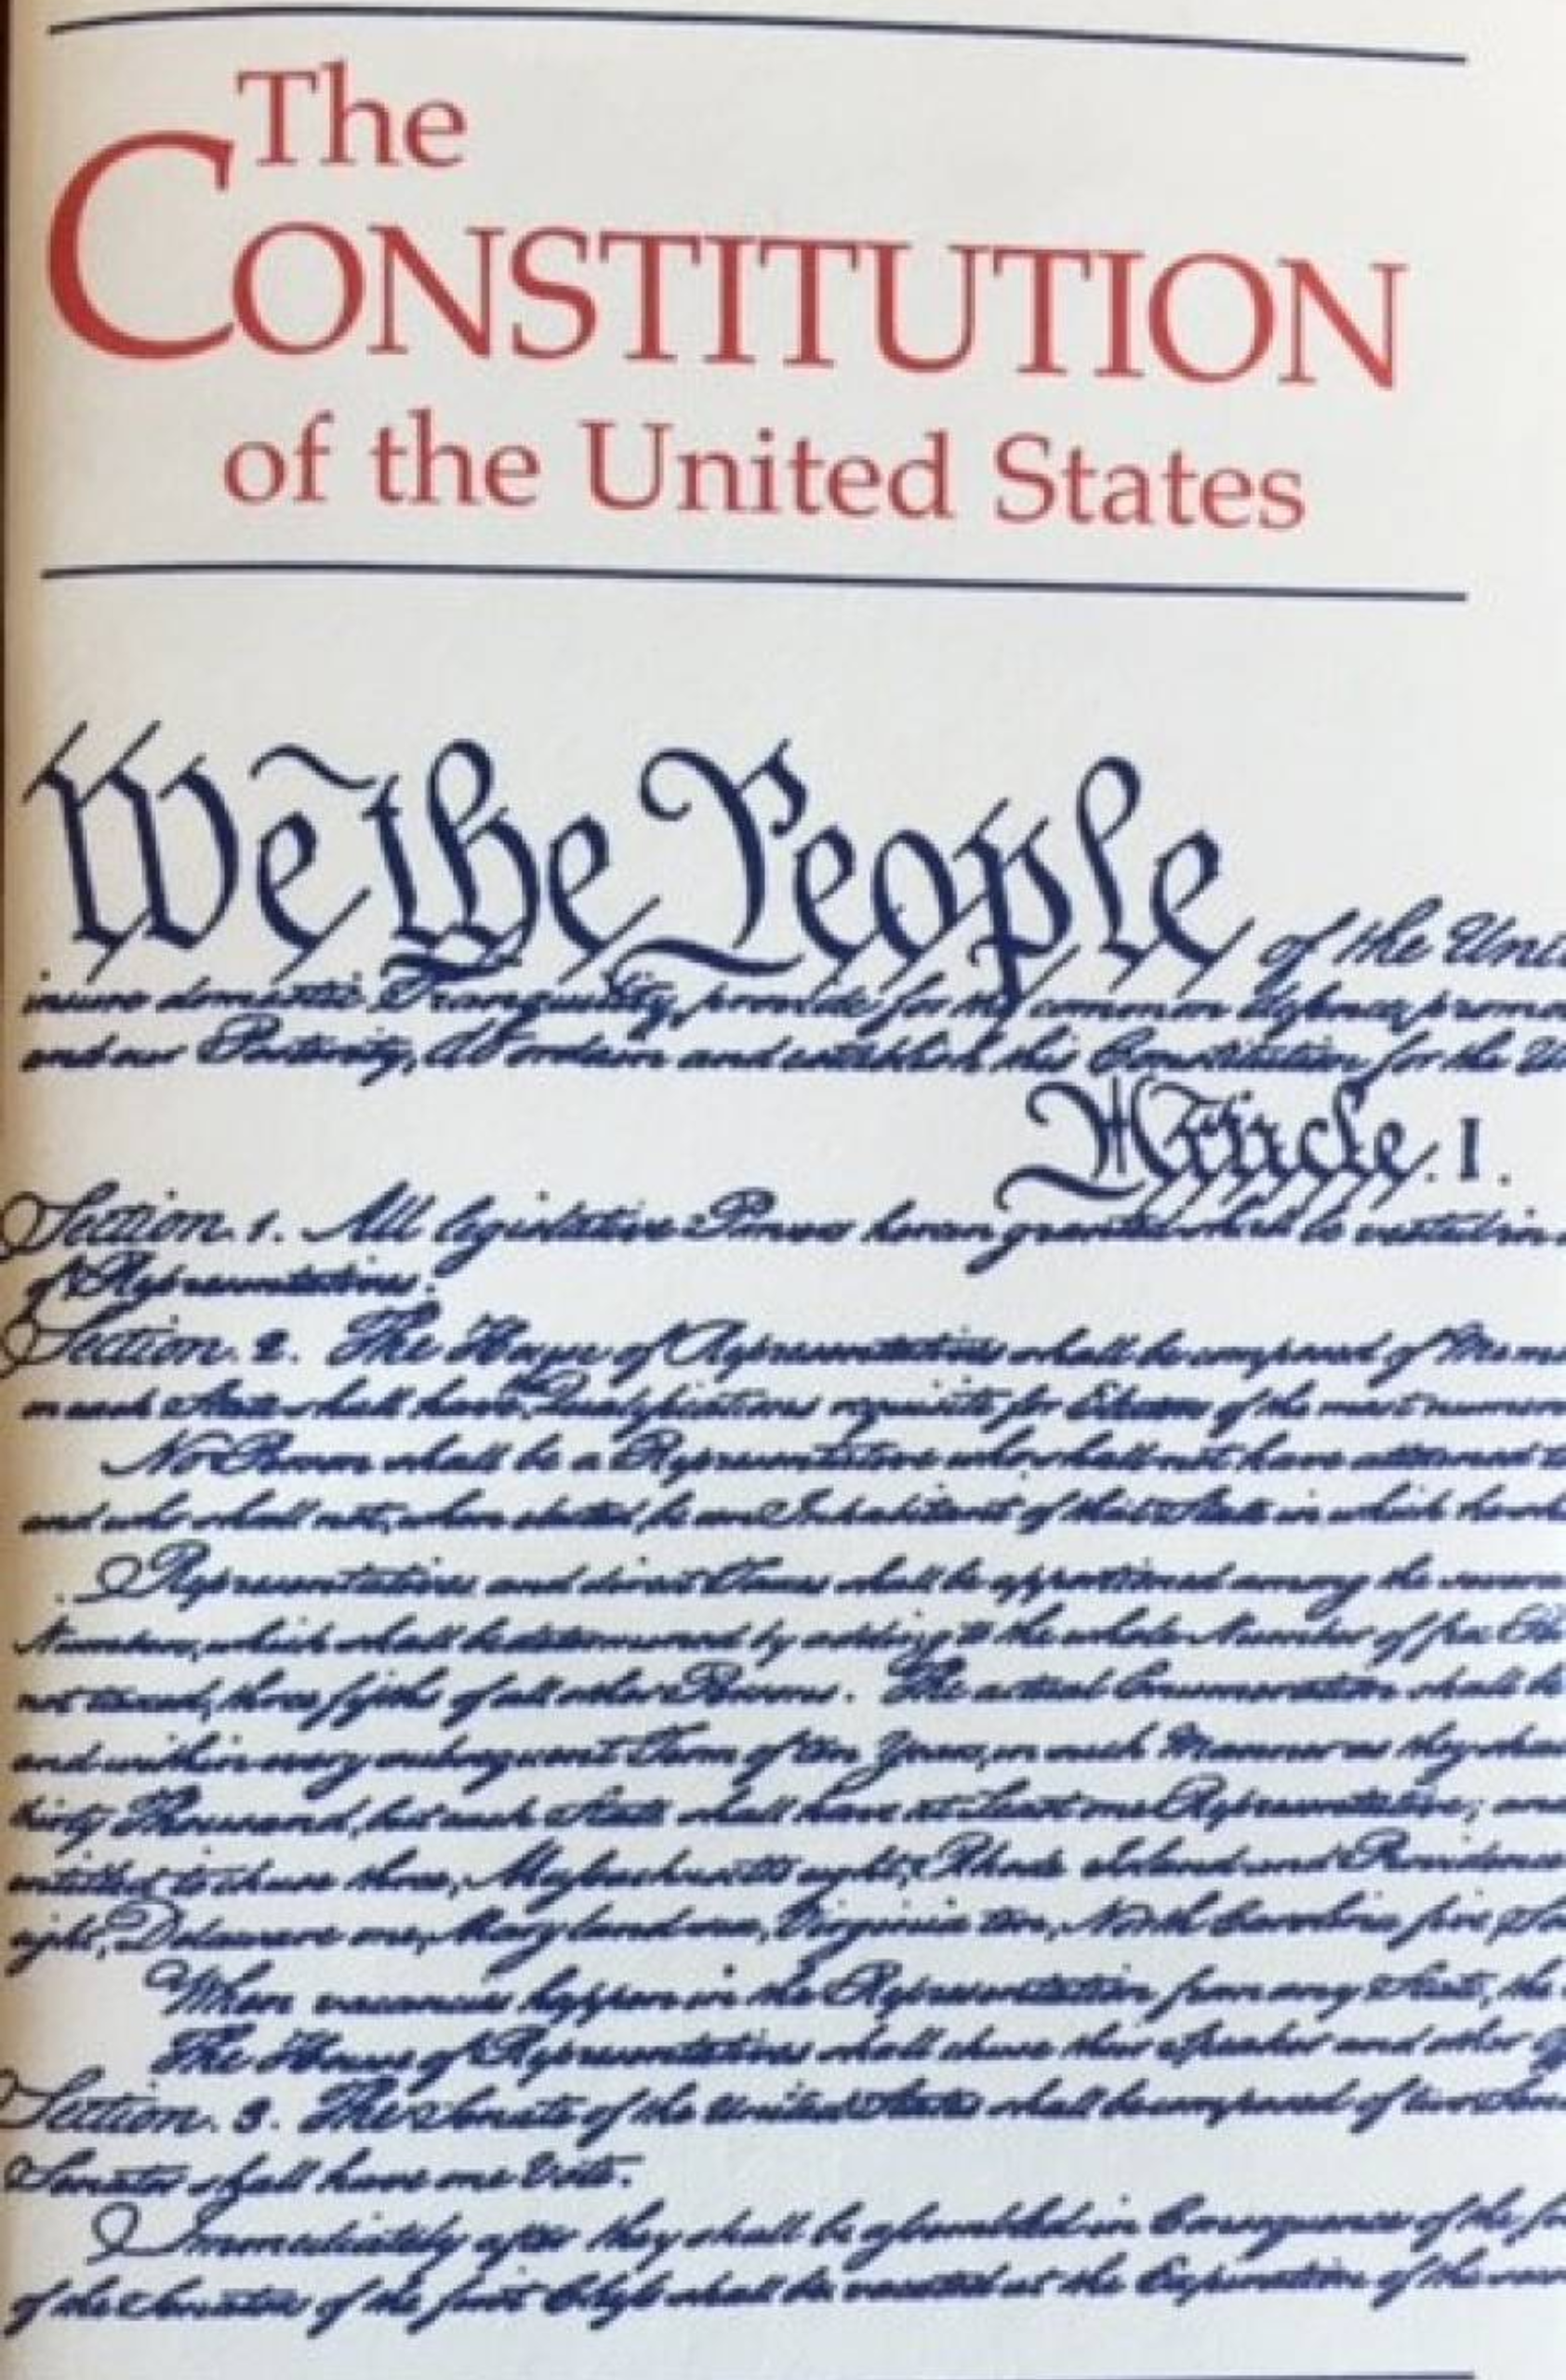 The
CONSTITUTION
of the United States
We the People of the Uni
insure domestic Tranquility, provide for the common defence, promo
and our Posterity, do ordain and establish this Constitution for the Un
Article. I.
Section. 1. All legislative Powers herein granted shall be vested in
of Representatives.
Section. 2. The House of Representatives shall be composed of Mem
in each State shall have the Qualifications requisite for Electors of the most numero
No Person shall be a Representative who shall not have attained t
and who shall not, when elected, be an Inhabitant of that State in which he
Representatives and direct Taxes shall be apportioned among the sever
Numbers, which shall be determined by adding to the whole Number of free
not taxed, three fifths of all other Persons. The actual Enumeration shall be
and within every subsequent Term of ten Years, in such Manner as they sha
thirty Thousand, but each State shall have at Least one Representative; and
entitled to chuse three, Massachusetts eight, Rhode Island and Providence
eight, Delaware one, Maryland six, Virginia ten, North Carolina five, So
When vacancies happen in the Representation from any State, the
The House of Representatives shall chuse their Speaker and other
Section. 3. The Senate of the United States shall be composed of two Sen
Senator shall have one Vote.
Immediately after they shall be assembled in Consequence of the fi
of the Senators of the first Class shall be vacated at the Expiration of the